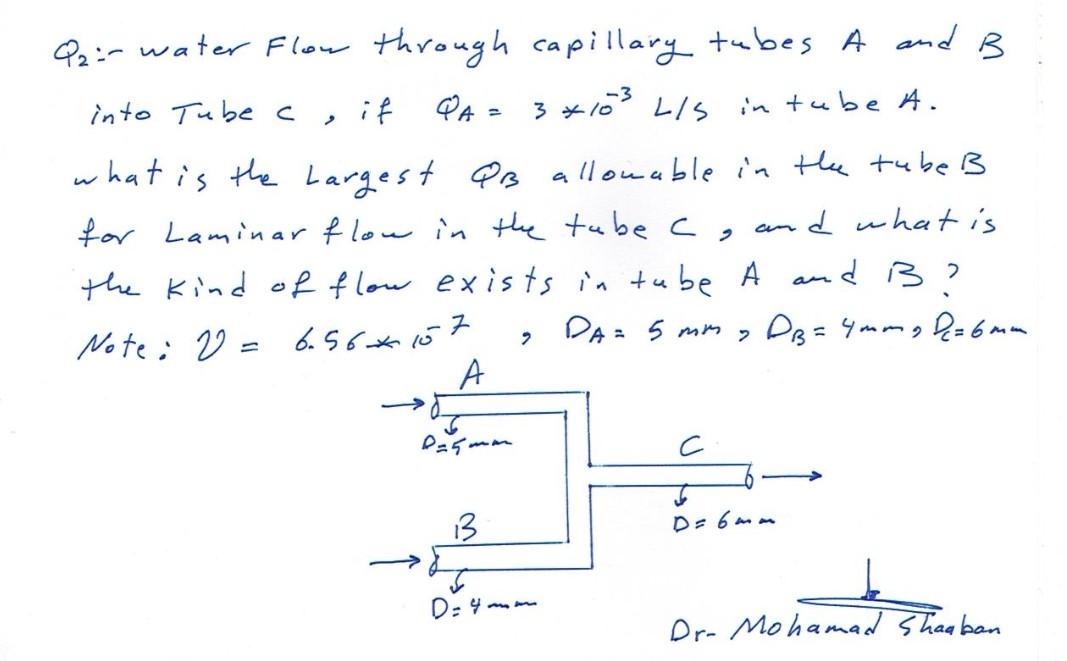 Q2:- water Flow through capillary tubes A and B
into Tube C, if QA = 3 * 10^-3 L/S in tube A.
what is the Largest QB allowable in the tube B
for Laminar flow in the tube C, and what is
the Kind of flow exists in tube A and B ?
Note: ν = 6.56 * 10^-7, DA = 5 mm, DB = 4mm, Dc=6mm
A
D=5mm
C
D=6mm
B
D=4mm
Dr- Mohamad Shaaban